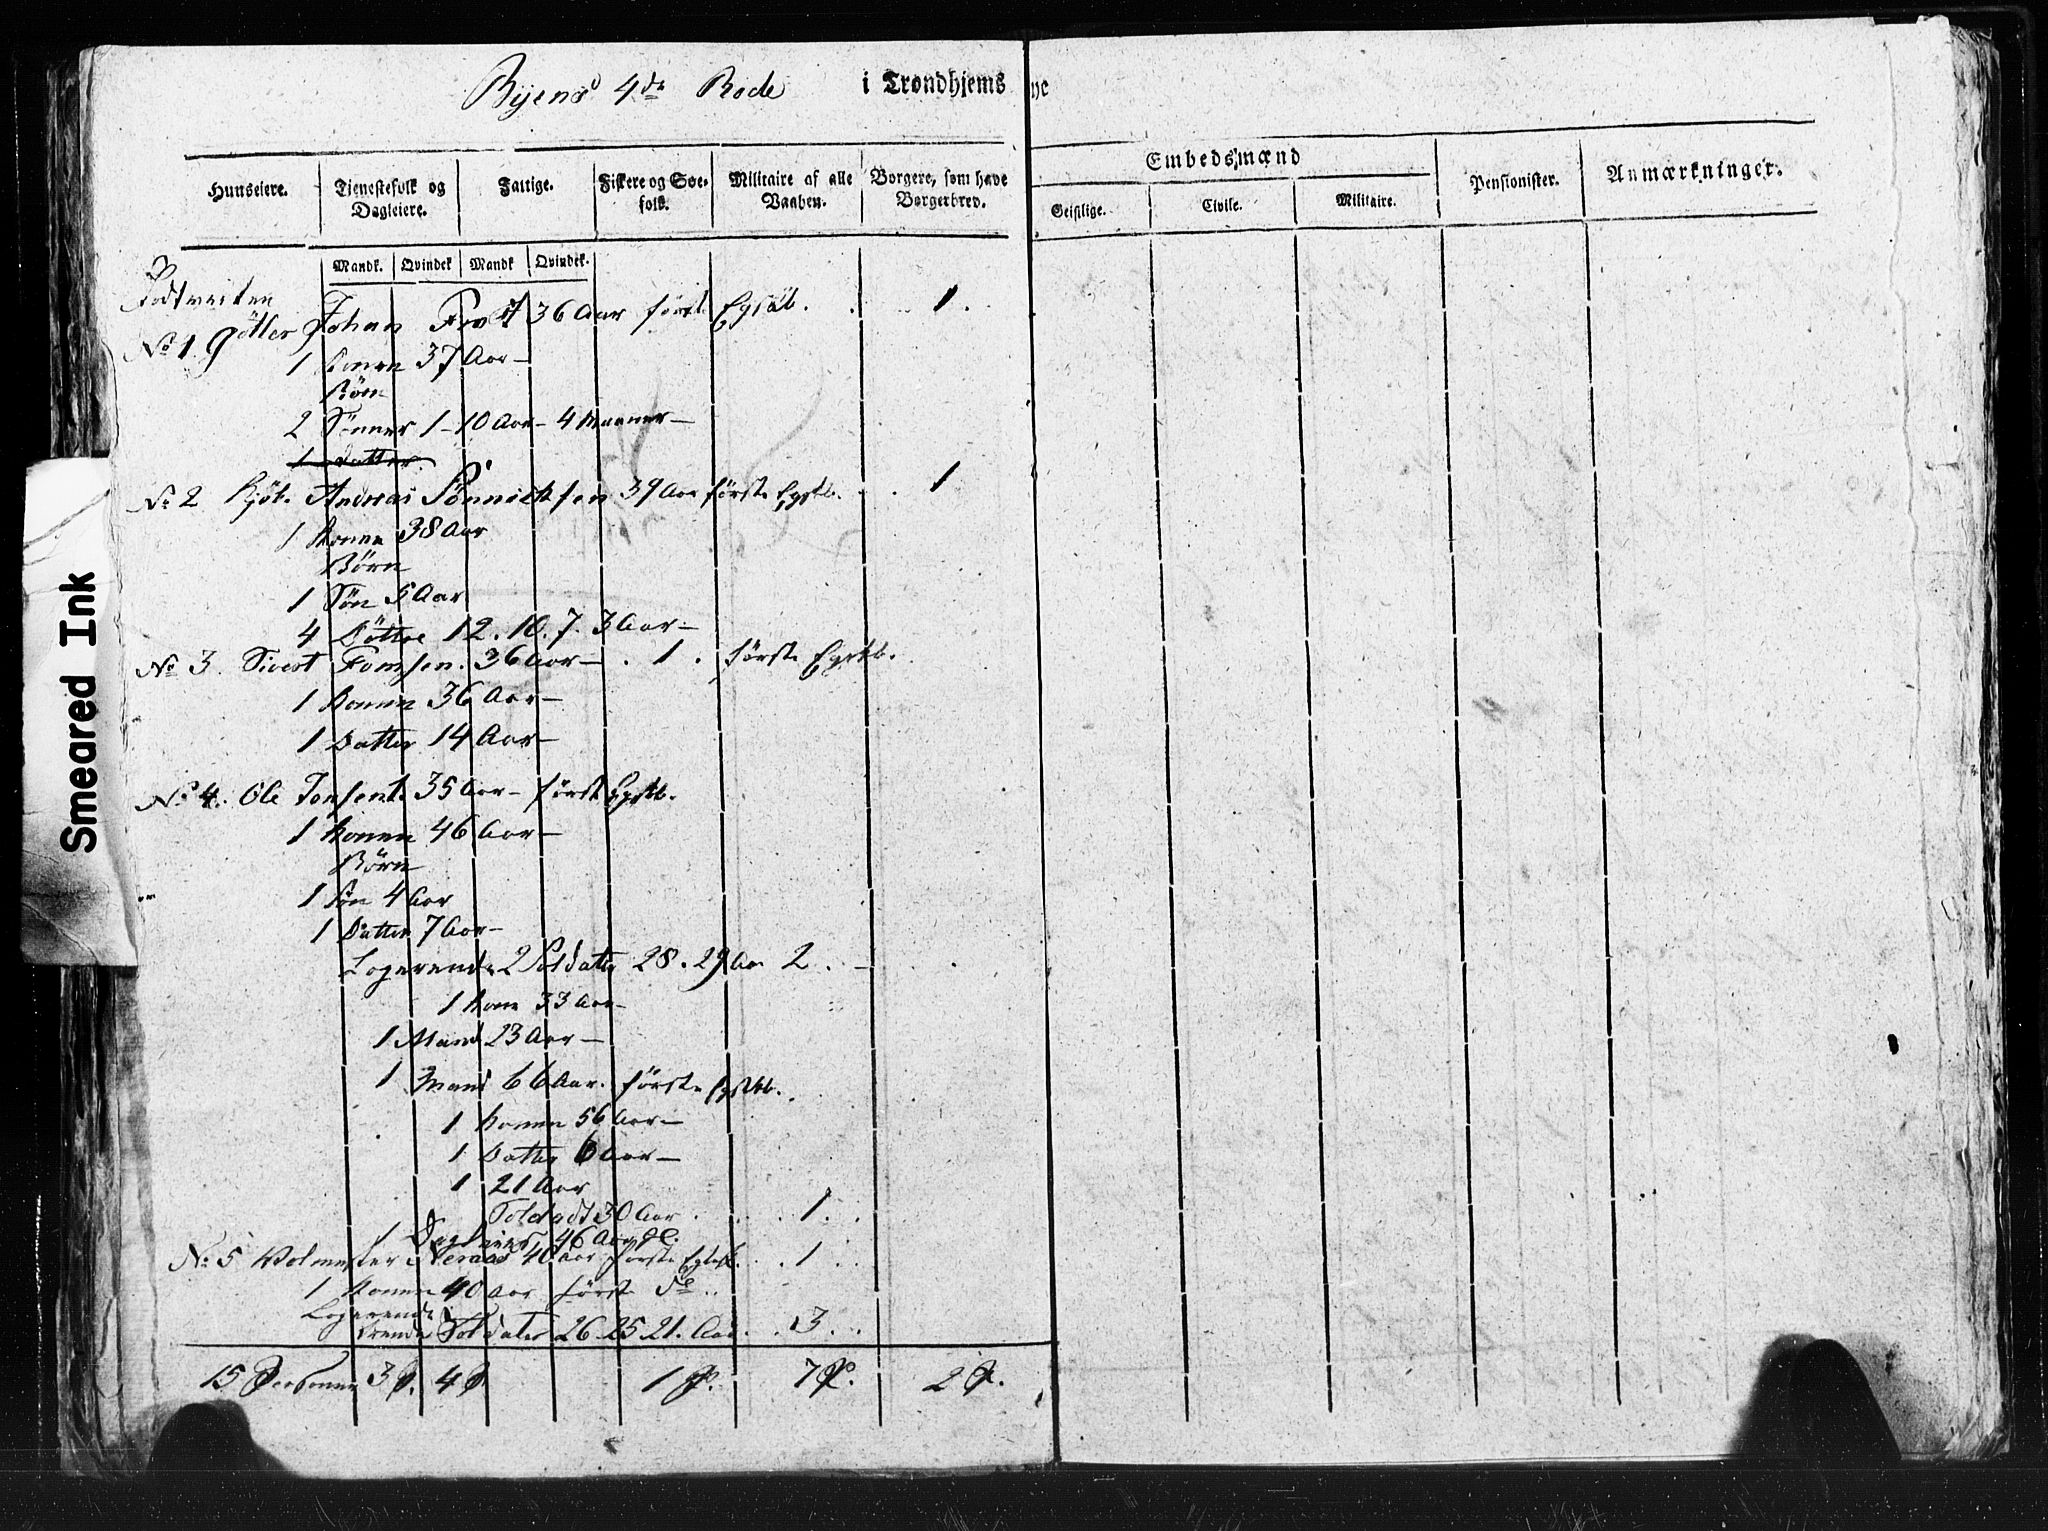 Byens 4de Rode i Trondhjems ye
Huuseiere. Tienestefolk og Dagleiere. Fattige. Fiskere og Søefolk. Militaire af alle Vaaben. Borgere, som have Borgerbrev. Embedsmænd Pensionister. Anmærkninger.
Geistlige. Civile. Militaire.
Mandk. Qvindek Mandk Qvindek.
No 1. Johan 36 Aar først 1.
1 Konen 37 Aar
Børn
2 Sønner 1 - 10 Aar - 4
1 Datter
No 2 Kjøb. Andreas Sönnichsen 39 Aar første Egtskb. 1
1 Konen 38 Aar
Børn
1 Søn 5 Aar
4 Døttre 12. 10. 7. 3 Aar
No 3. Sivert Tomsen. 36 Aar . 1 . første Egtskb.
1 Konen 36 Aar
1 Datter 14 Aar
No 4. Ole 35 Aar først Egtskb.
1 Konen 46 Aar
Børn
1 Søn 4 Aar
1 Datter 7 Aar
Logerende 2 Soldater 28. 29 Aar 2
1 Kone 33 Aar
1 Mand 23 Aar
1 Mand 66 Aar. første Egtskb.
1 Konen 56 Aar
1 Datter 6 Aar
1 21 Aar
Soldadt 30 Aar 1.
1 46 Aar
No 5 40 Aar første 1
1 Konen 40 Aar første do
Logerende
Soldater 26 25 21. Aar 3.
15 Personer 3 P. 4 P 1 P. 7 P. 2 P.
Smeared Ink